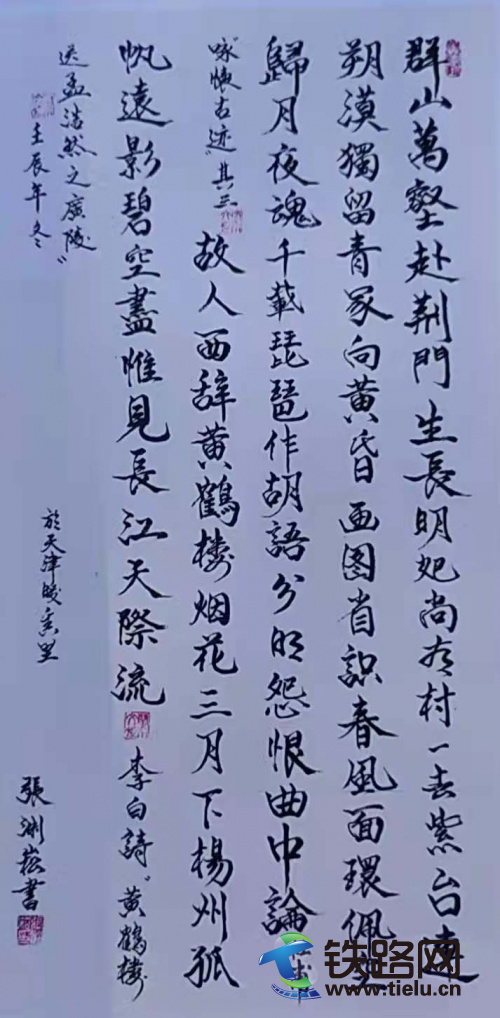 群山萬壑赴荆門生長明妃尚有村一去紫台連
朔漠獨留青冢向黄昏画图省識春風面環佩空
歸月夜魂千載琵琶作胡語分明怨恨曲中論
"咏懷古迹"其三 故人西辞黄鶴楼烟花三月下楊州孤
帆遠影碧空盡惟見長江天際流 李白詩"黄鶴楼
送孟浩然之廣陵"
壬辰年冬
於天津里
張崧書
铁路网
www.tielu.cn